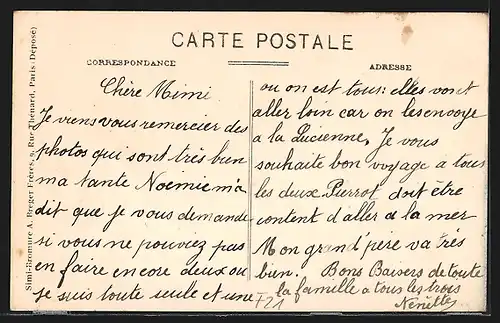 CARTE POSTALE
CORRESPONDANCE
ADRESSE
Simi-Bromure A. Breger Frères, 9, Rue Thénard, Paris (Déposé)
Chère Mimi
Je viens vous remercier des
photos qui sont très bien
ma tante Noemie m'a
dit que je vous demande
si vous ne pouviez pas
en faire encore deux ou
je suis toute seule et une
ou on est tous: elles vont
aller loin car on les envoye
a la Lucienne. Je vous
souhaite bon voyage a tous
les deux Pierrot doit être
content d'aller a la mer
Mon grand'père va très
bien. Bons Baisers de toute
la famelle a tous les trois
F21